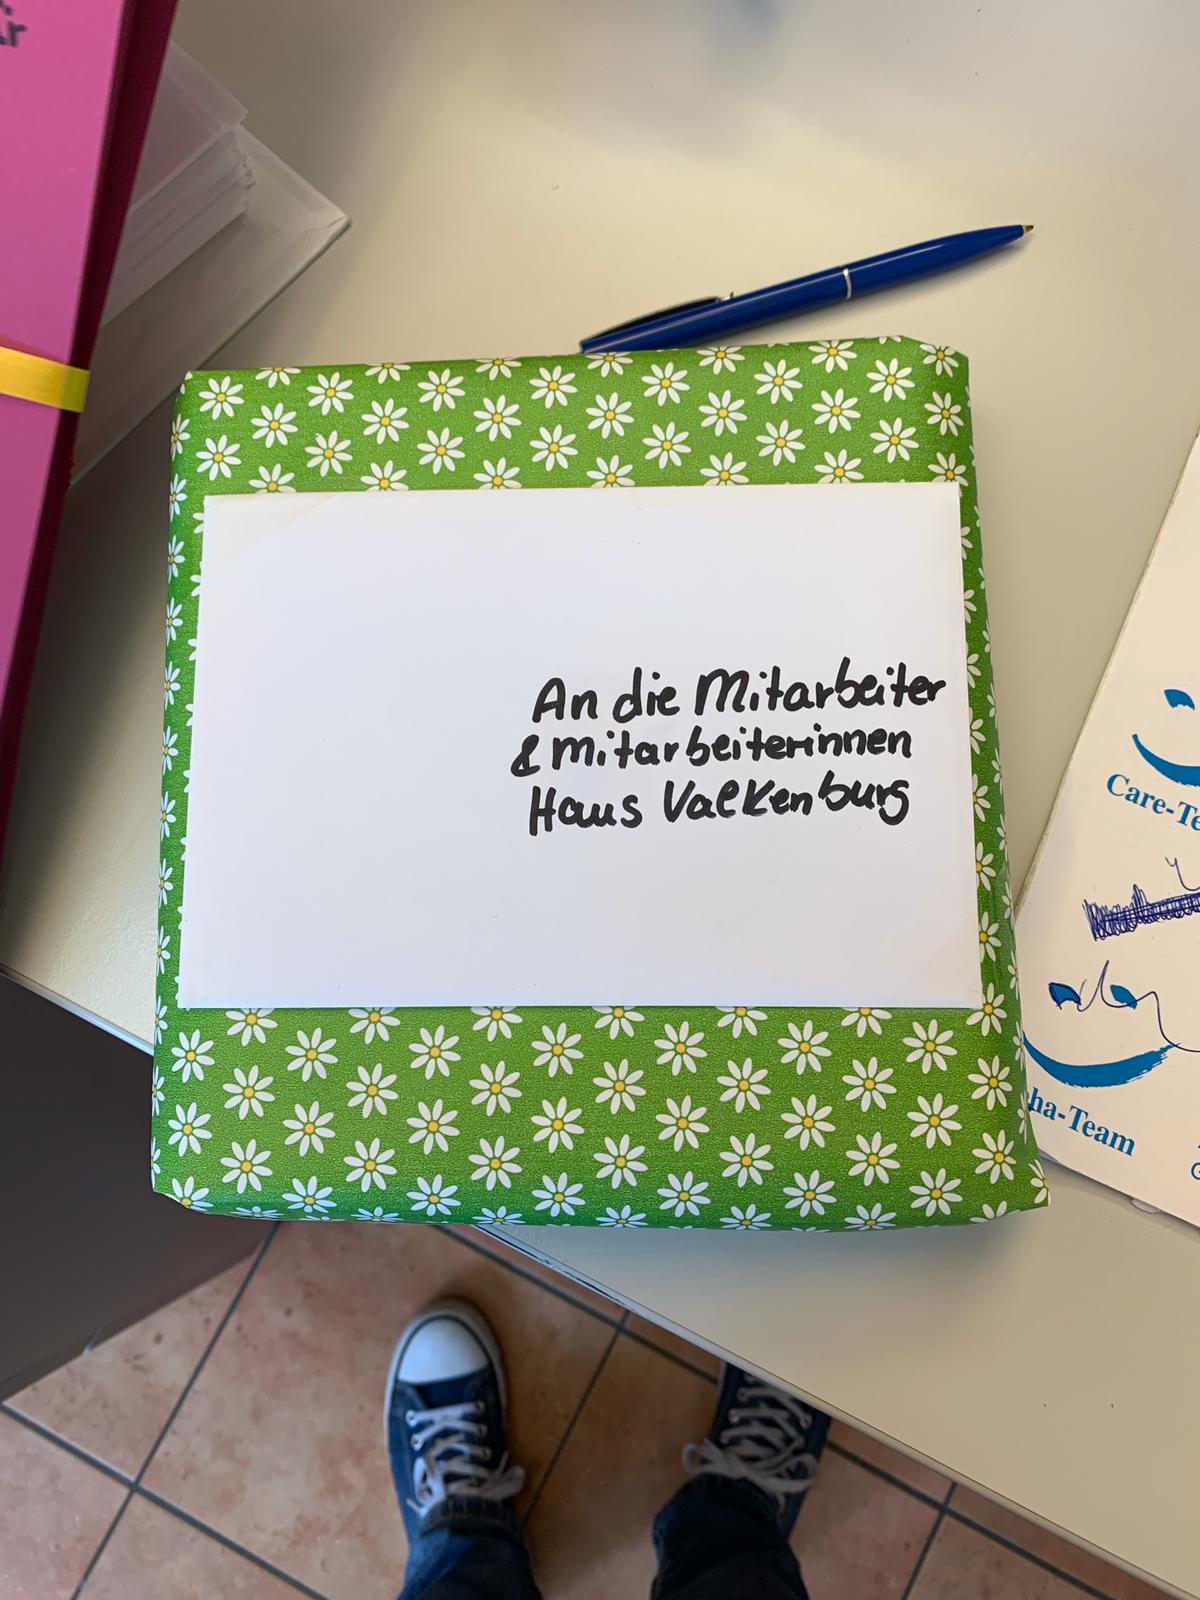 An die Mitarbeiter
& Mitarbeiterinnen
Haus Valkenburg
Care-Te
ha-Team